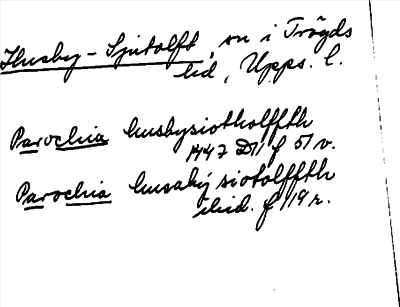 Husby-Sjutolft, sn i Trögds
hd, Upps. l.
Parochia husbysiotholffth
1447 D11 f 51 v.
Parochia husaby siotolffth
ibid. f 119 r.